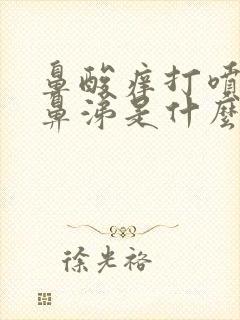 鼻酸痒打噴
鼻涕是什麼
徐光裕